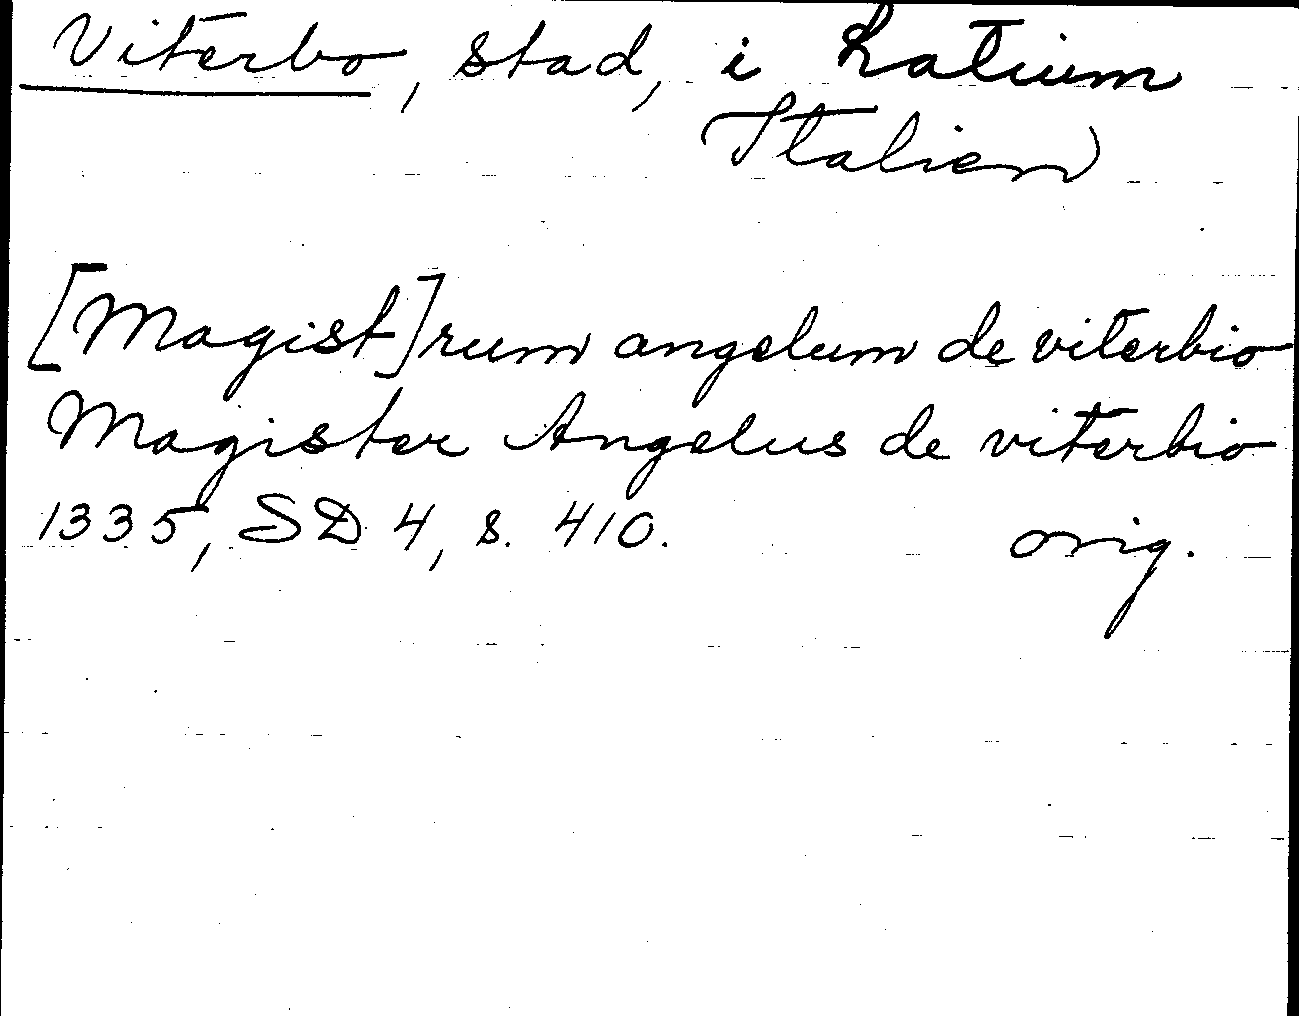 Viterbo, stad, i Latium
Italien
[Magist]rum angelum de viterbio
Magister Angelus de viterbio
1335, SD 4, s. 410. orig.